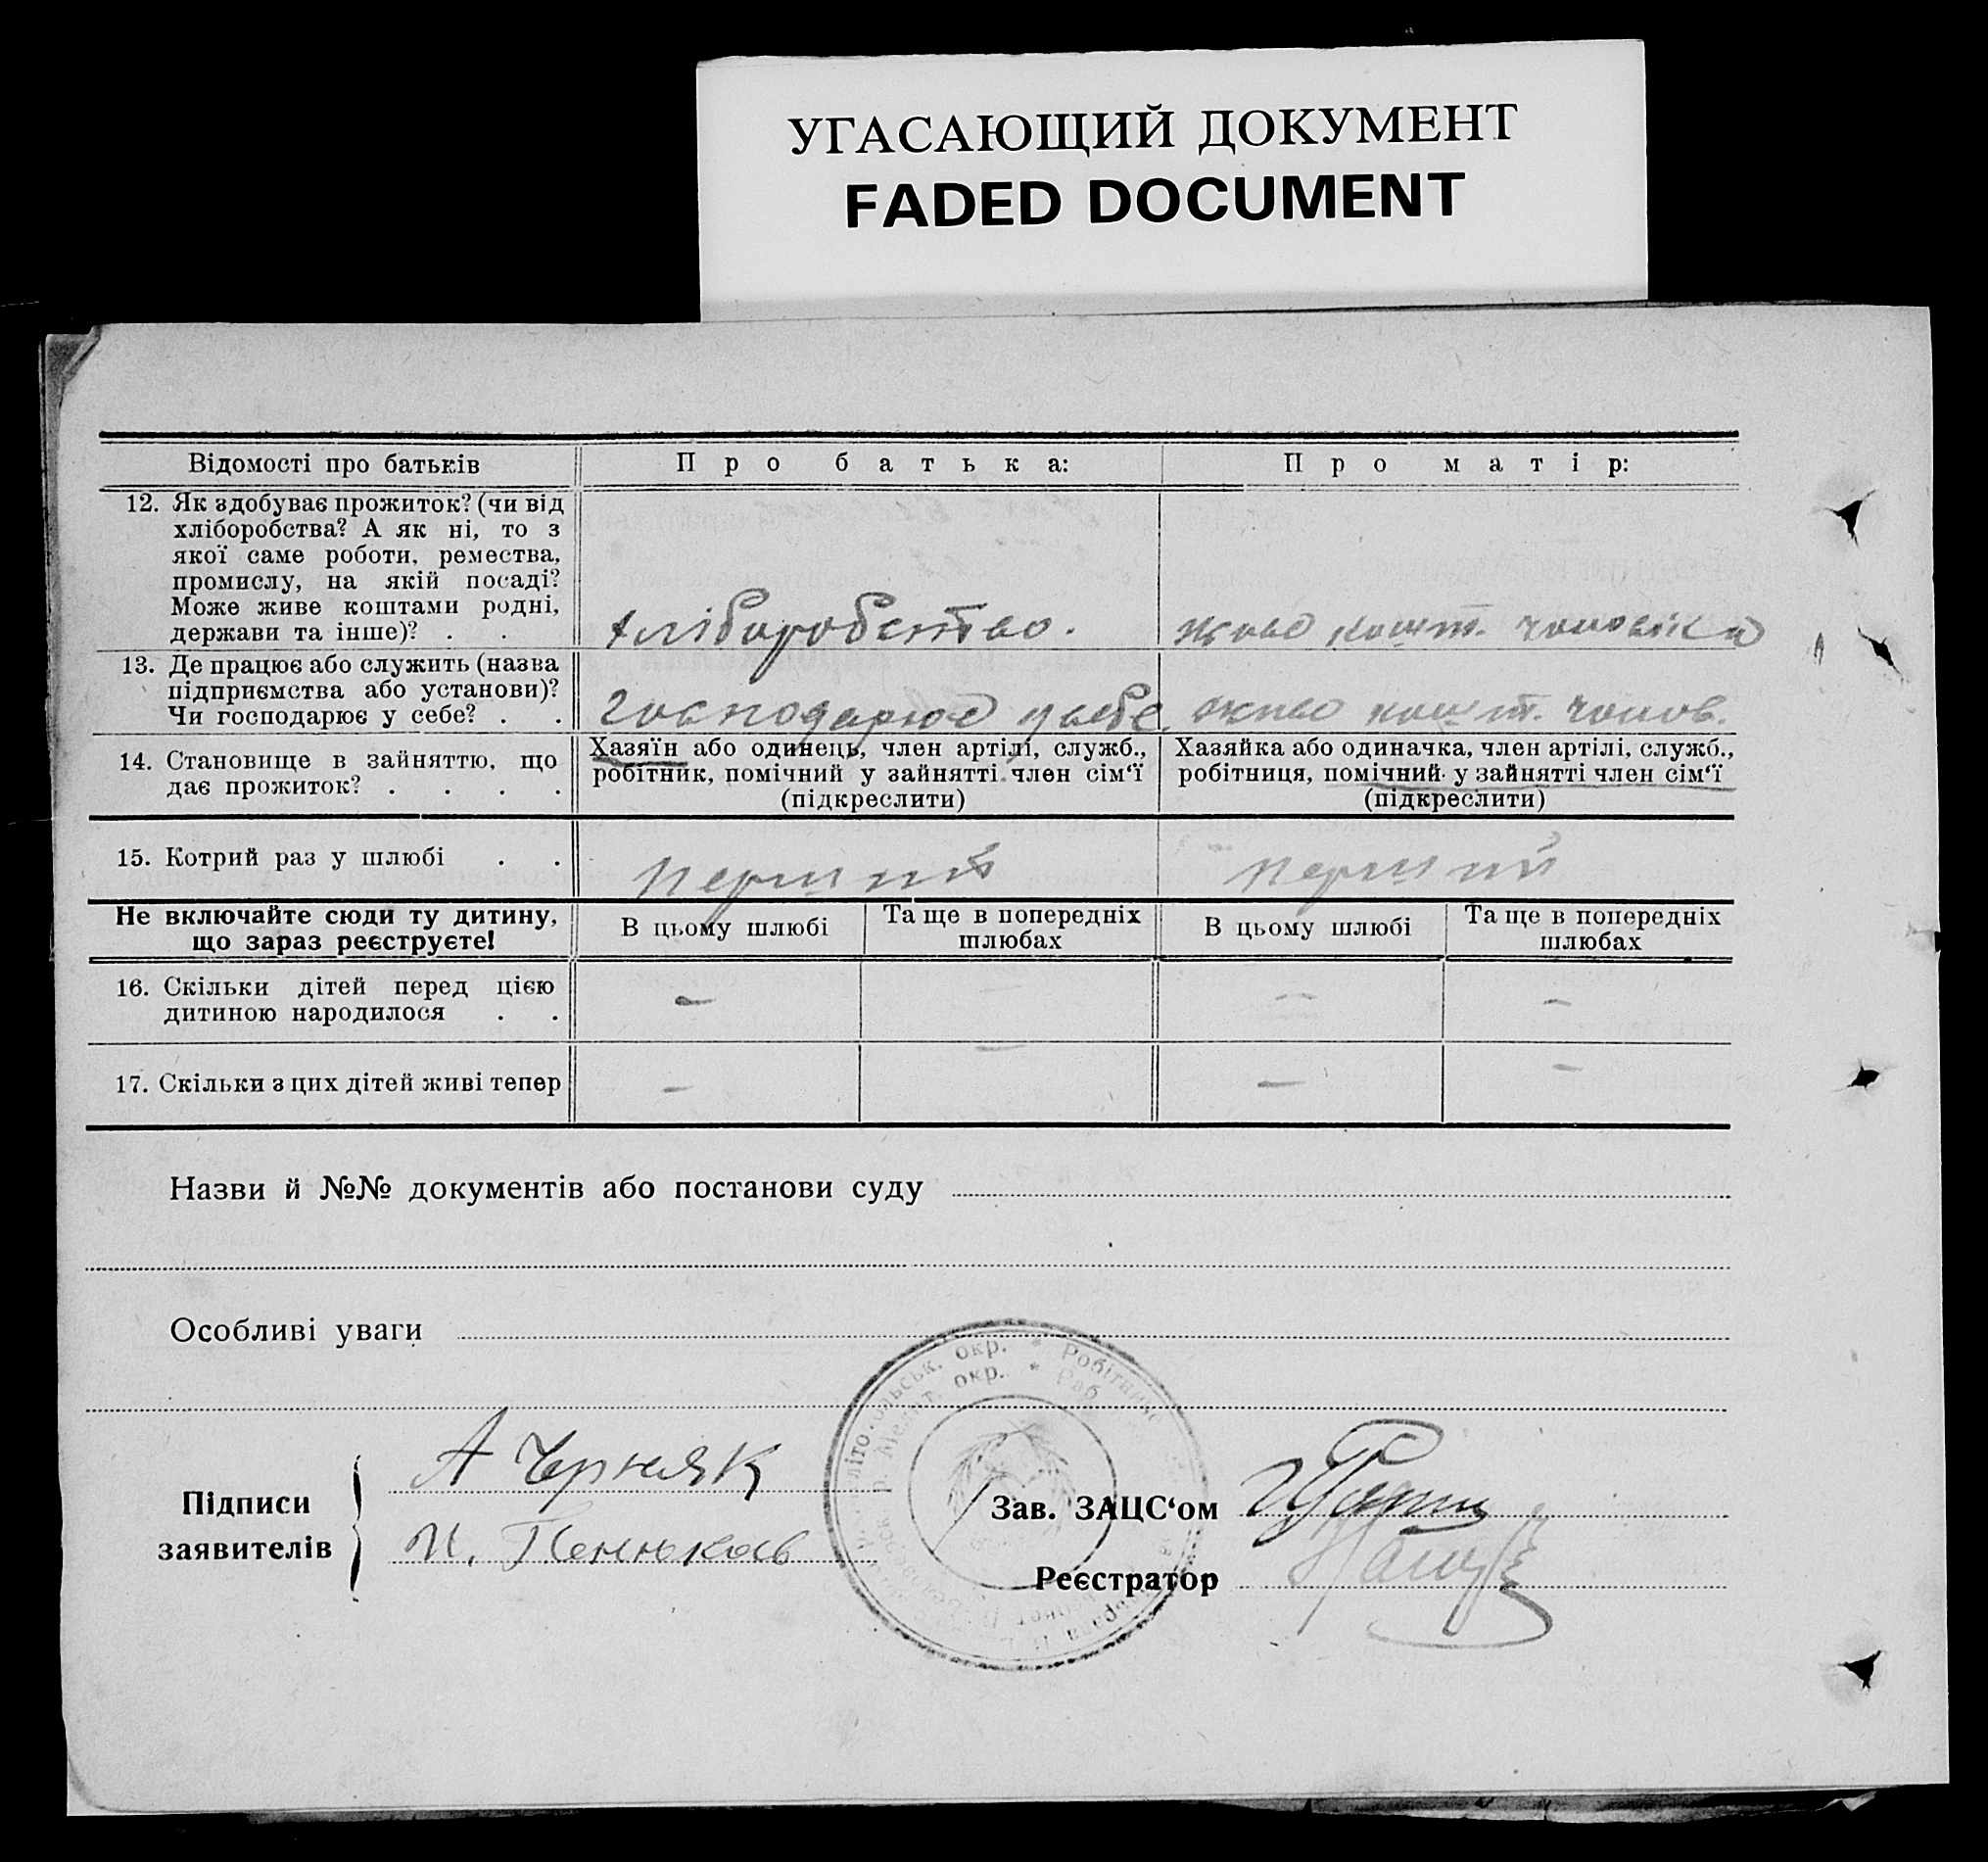 УГАСАЮЩИЙ ДОКУМЕНТ
FADED DOCUMENT
Відомості про батьків
Про батька:
Про матір:
12. Як здобуває прожиток? (чи від
хліборобства? А як ні, то з
якої саме роботи, ремества,
промислу, на якій посаді?
Може живе коштами родні,
держави та інше)? . .
хліборобство.
живе кошт. чоловіка
13. Де працює або служить (назва
підприємства або установи)?
Чи господарює у себе? . .
господарює у себе.
живе кошт. чолов.
14. Становище в зайняттю, що
дає прожиток? . . . .
Хазяїн або одинець, член артілі, служб.,
робітник, помічний у зайнятті член сім‘ї
(підкреслити)
Хазяйка або одиначка, член артілі, служб.,
робітниця, помічний у зайнятті член сім‘ї
(підкреслити)
15. Котрий раз у шлюбі . .
перший
перший
Не включайте сюди ту дитину,
що зараз реєструєте!
В цьому шлюбі
Та ще в попередніх
шлюбах
В цьому шлюбі
Та ще в попередніх
шлюбах
16. Скільки дітей перед цією
дитиною народилося . .
–
–
–
–
17. Скільки з цих дітей живі тепер
–
–
–
–
Назви й №№ документів або постанови суду
Особливі уваги
окр. * Робітниче
окр. * Раб
Підписи
заявителів
А Черняк
И.
Зав. ЗАЦС‘ом
Реєстратор